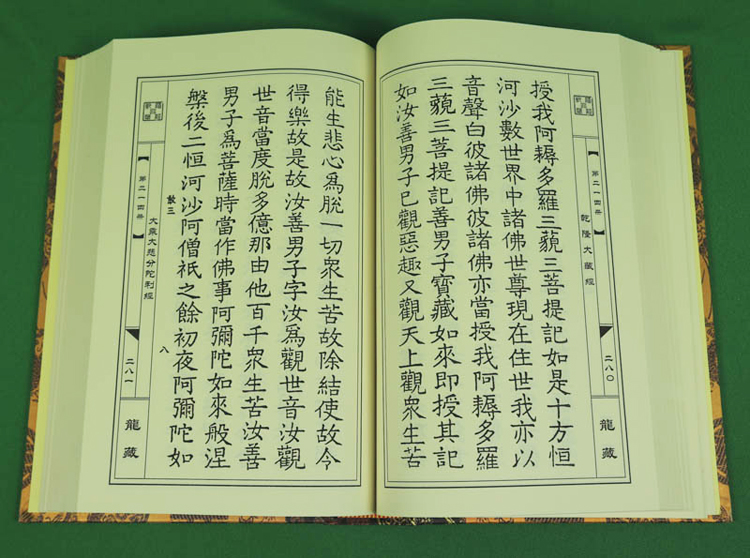 乾隆大藏經
【第二一四冊】
二八〇
龍藏
授我阿耨多羅三藐三菩提記如是十方恒
河沙數世界中諸佛世尊現在住世我亦以
音聲白彼諸佛彼諸佛亦當授我阿耨多羅
三藐三菩提記善男子寶藏如來即授其記
如汝善男子已觀惡趣又觀天上觀衆生苦
能生悲心爲脫一切衆生苦故除結使故今
得樂故是故汝善男子字汝爲觀世音汝觀
世音當度脫多億那由他百千衆生苦汝善
男子爲菩薩時當作佛事阿彌陀如來般涅
槃後二恒河沙阿僧祇之餘初夜阿彌陀如
散三
八
大乘大悲分陀利經
【第二一四冊】
二八一
龍藏